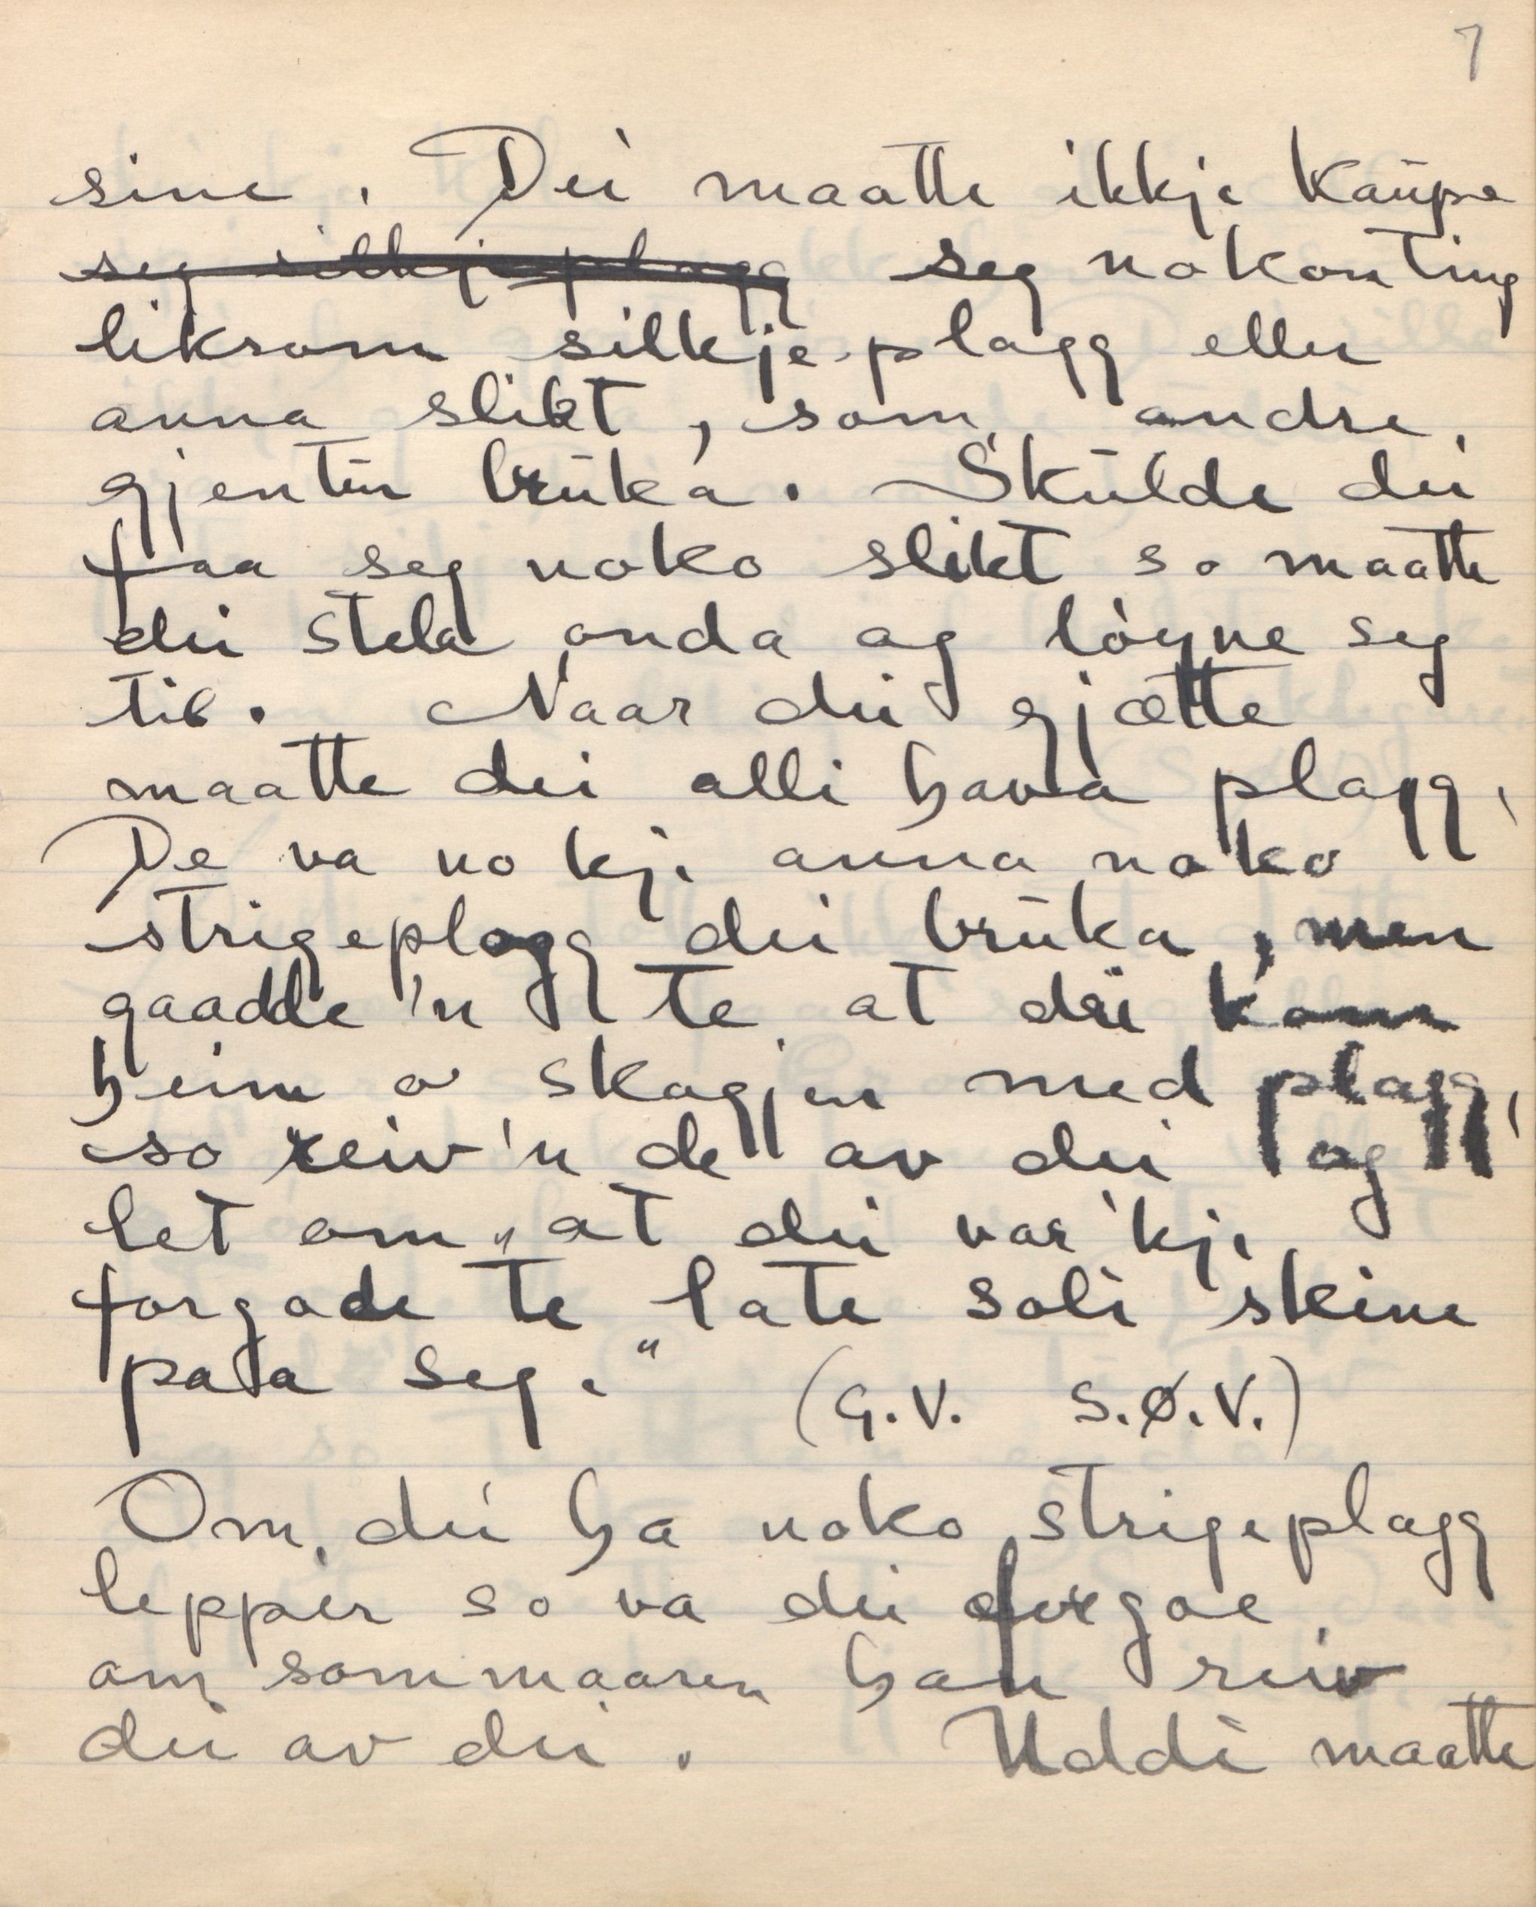 7
sine. Dei maatte ikkje kaupa
seg silkjeplagg seg nokon ting
liksom silkje-plagg eller
anna slikt, som andre
gjentur bruka. Skulde dei
faa seg noko slikt so maatte
dei stela onda og løyne seg
til. Naar dei gjætte
maatte dei alli hava plagg,
De va no kji anna noko
strigeplagg dei bruka, men
gaadde 'n te at dei kom
heim o skogjen med plagg,
so reiv 'n de av dei og
let om „at dei var 'kji
forgode te late soli skine
paa seg."
(G.V. S.Ø.V.)
Om dei ha noko strigeplagg
lepper so va dei forgoe
om sommaaren han reiv
dei av dei. Uddi maatte